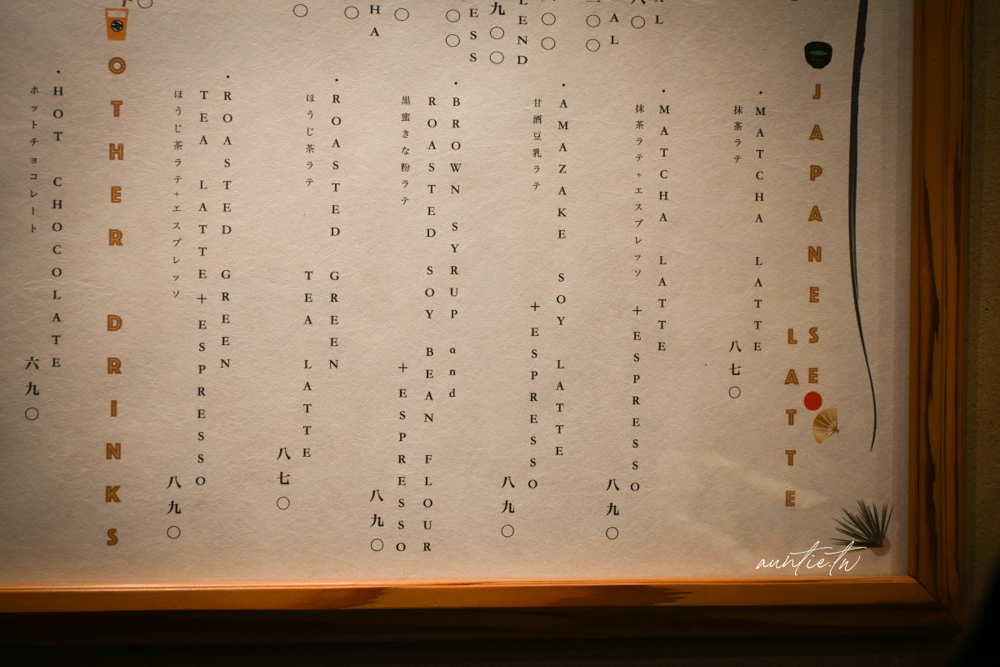 JAPANESE
LATTE
・MATCHA LATTE
抹茶ラテ
八七〇
・MATCHA LATTE
+ESPRESSO
抹茶ラテ+エスプレッソ
八九〇
・AMAZAKE SOY LATTE
+ESPRESSO
甘酒豆乳ラテ
八九〇
・BROWN SYRUP and
ROASTED SOY BEAN FLOUR
+ESPRESSO
黒蜜きな粉ラテ
八九〇
・ROASTED GREEN
TEA LATTE
ほうじ茶ラテ
八七〇
・ROASTED GREEN
TEA LATTE+ESPRESSO
ほうじ茶ラテ+エスプレッソ
八九〇
OTHER DRINKS
・HOT CHOCOLATE
ホットチョコレート
六九〇
auntie.tw